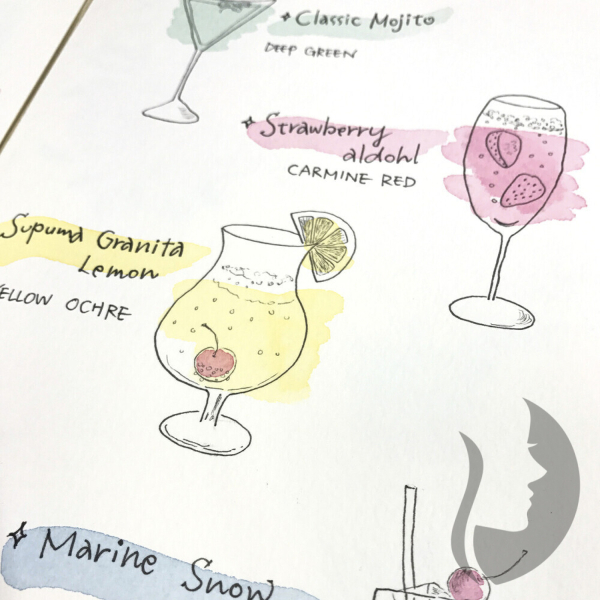 Classic Mojito
DEEP GREEN
Strawberry
aldohl
CARMINE RED
Supuma Granita
Lemon
YELLOW OCHRE
Marine Snow